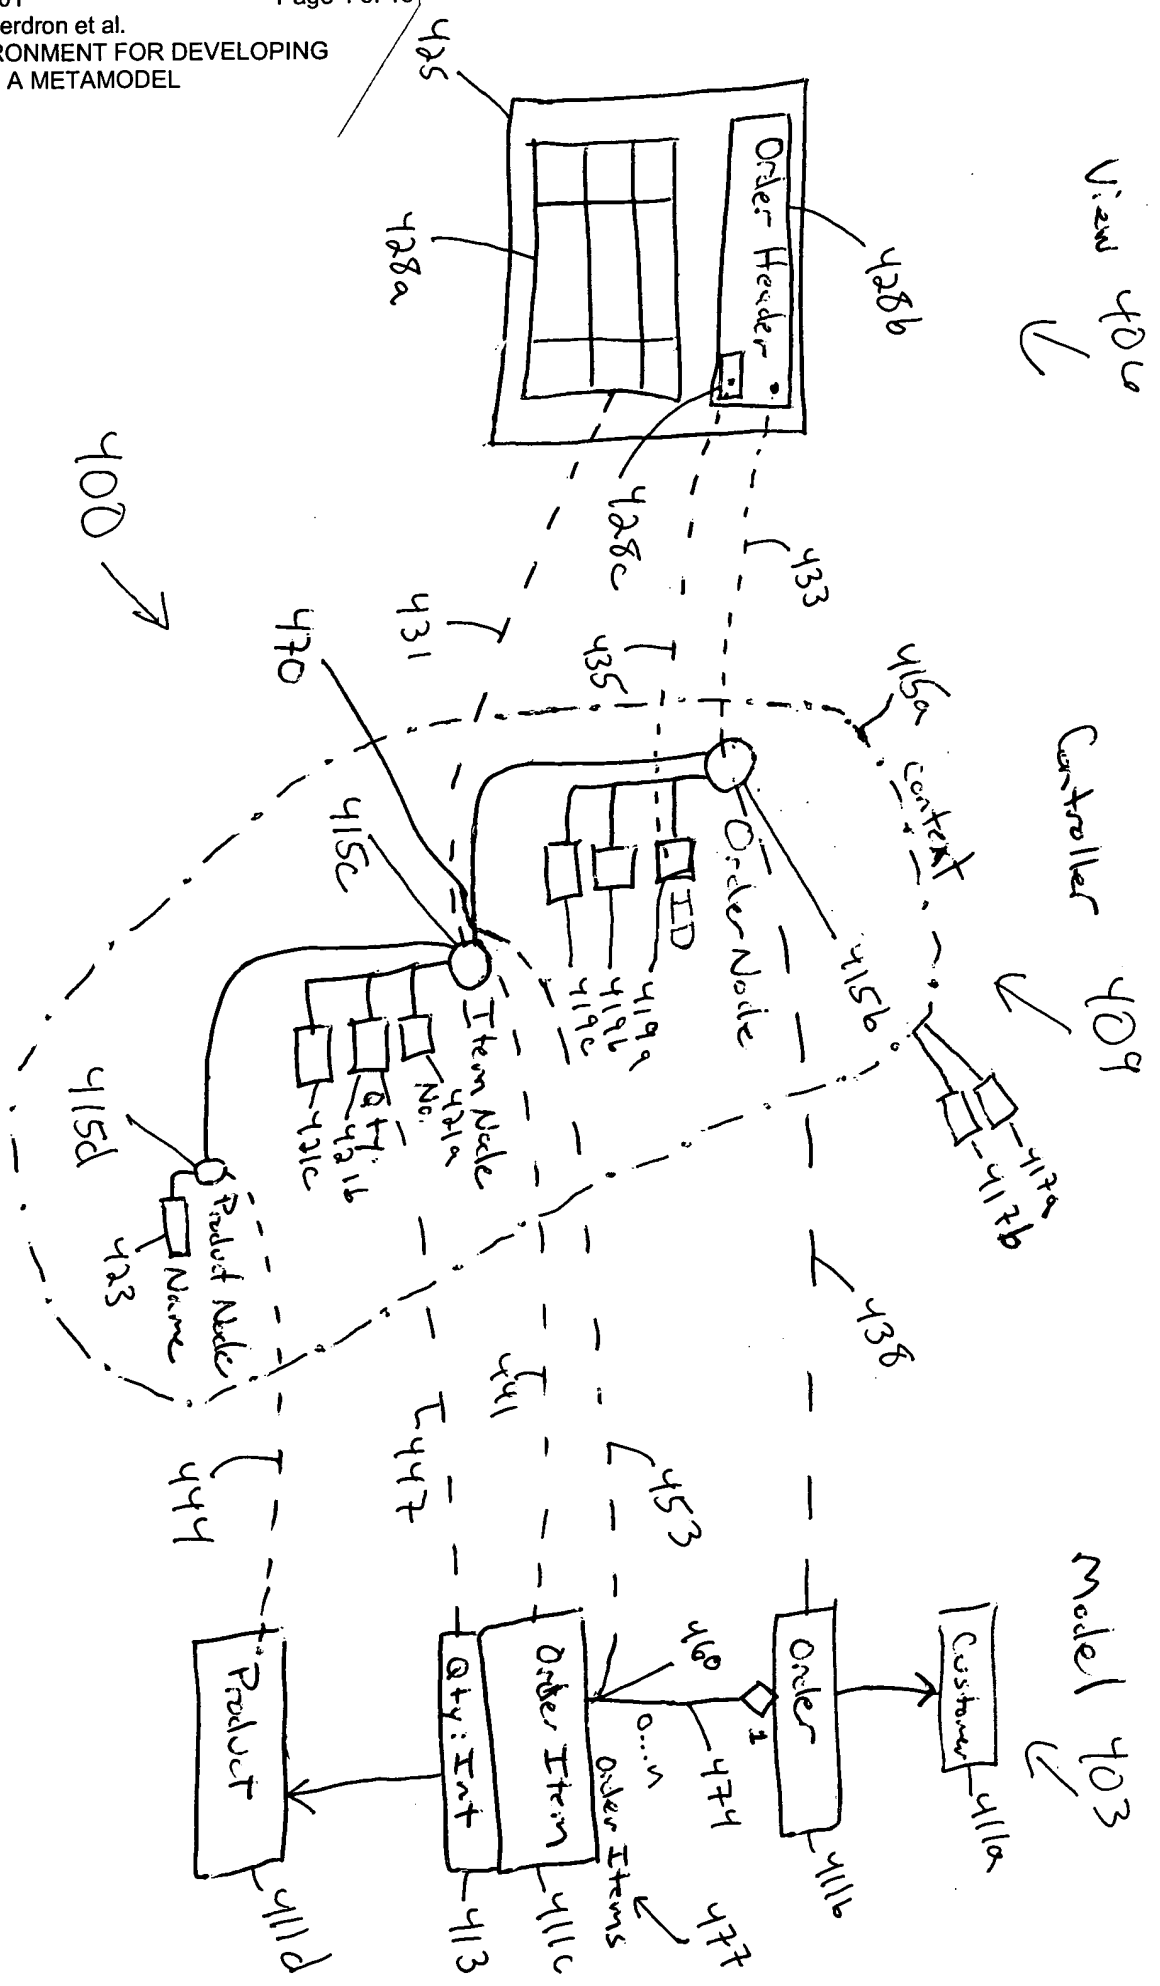 Page 4 of 1
erdron et al.
RONMENT FOR DEVELOPING
A METAMODEL
View 406
Controller 409
Model 403
425
Order Header
428b
428a
428c
400
433
435
431
470
415a
Context
415b
Order Node
ID
419a
419b
419c
417a
417b
415c
Item Node
No.
421a
Qty.
421b
421c
415d
Product Node
Name
423
438
453
441
447
444
Customer
411a
Order
411b
1
474
460
0....n
Order Items
477
Order Item
411c
Qty: Int
413
Product
411d